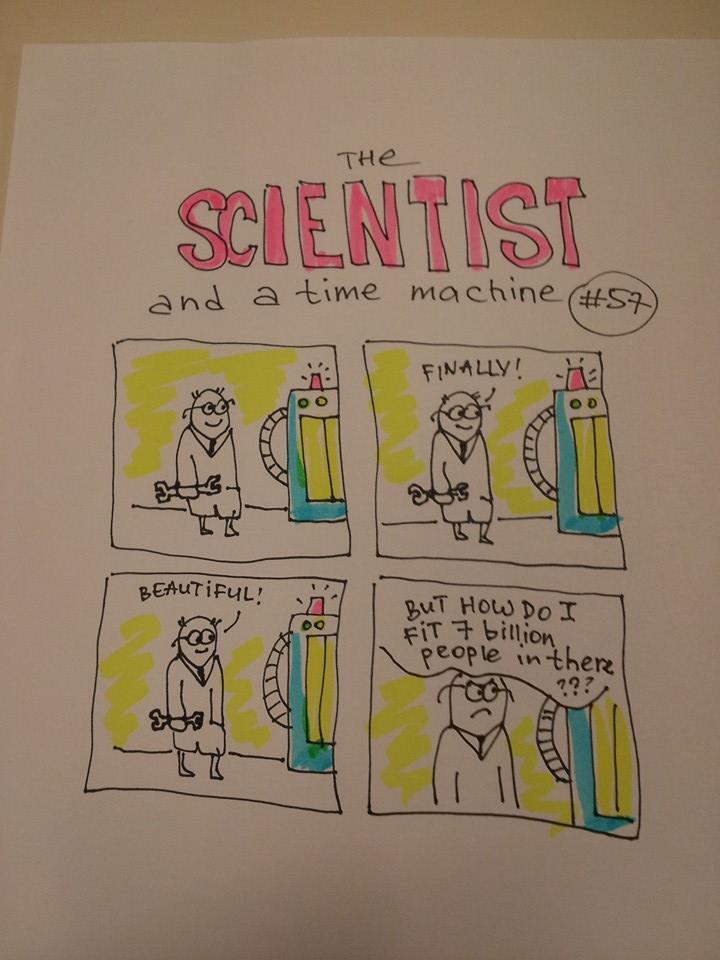 THE
SCIENTIST
and a time machine #57
FINALLY!
BEAUTiFUL!
BUT HOW DO I
FiT 7 billion
people in there
???